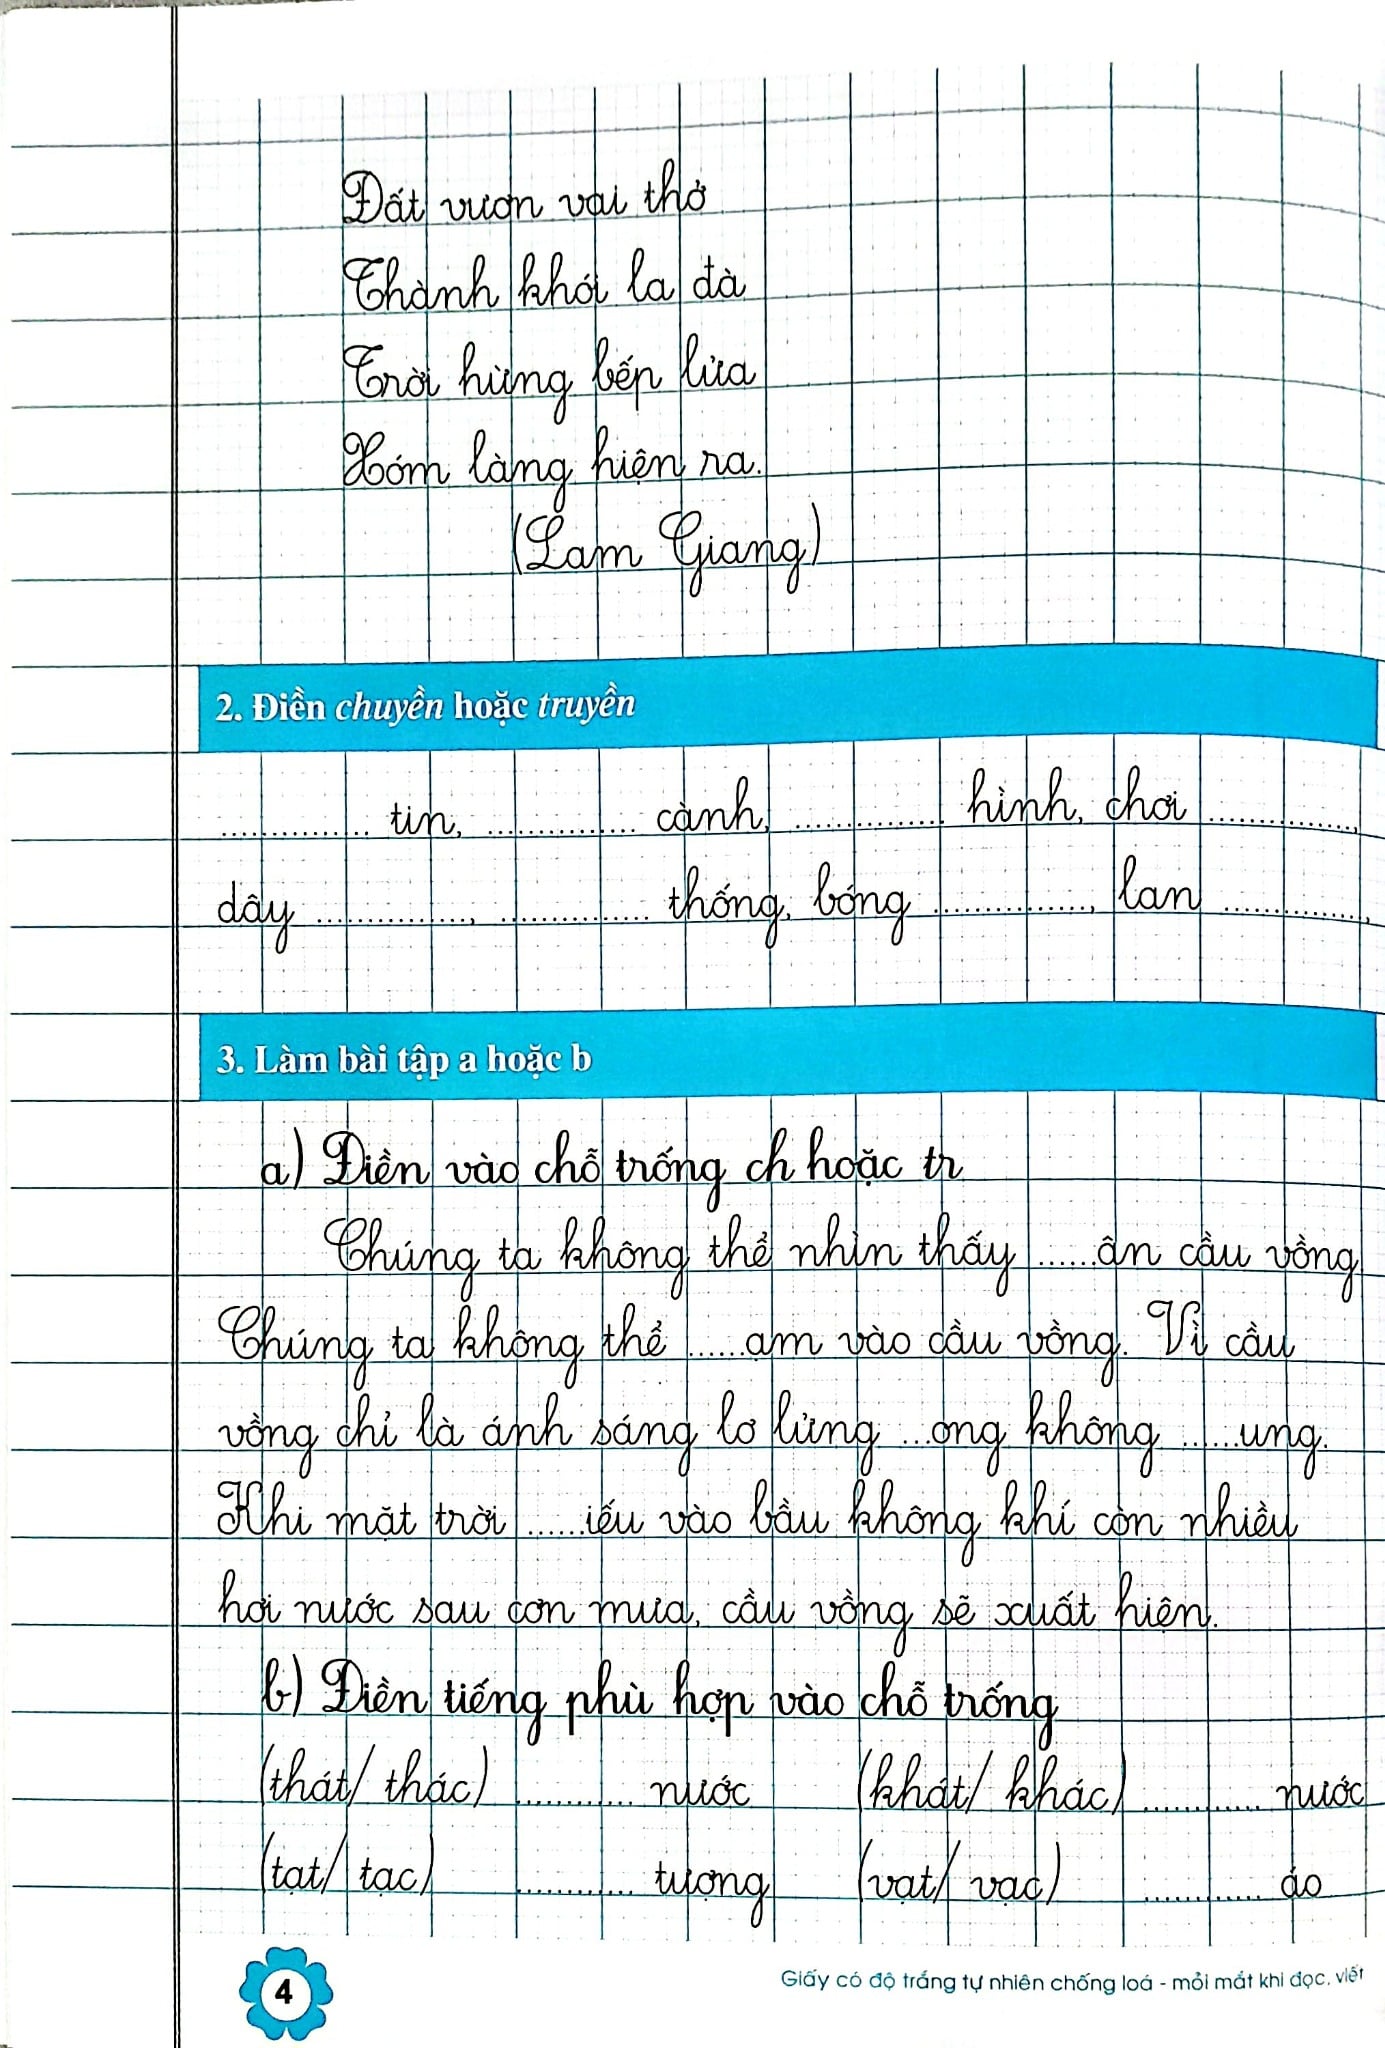 Đất vươn vai thở
Thành khói la đà
Trời hừng bếp lửa
Xóm làng hiện ra.
(Lam Giang)
2. Điền chuyền hoặc truyền
.............. tin, .............. cành, .............. hình, chơi ..............,
dây .............., .............. thống, bóng .............., lan ..............,
3. Làm bài tập a hoặc b
a) Điền vào chỗ trống ch hoặc tr
Chúng ta không thể nhìn thấy ......ân cầu vồng
Chúng ta không thể ......ạm vào cầu vồng. Vì cầu
vồng chỉ là ánh sáng lơ lửng ...ong không ......ung.
Khi mặt trời ......iếu vào bầu không khí còn nhiều
hơi nước sau cơn mưa, cầu vồng sẽ xuất hiện.
b) Điền tiếng phù hợp vào chỗ trống
(thát/ thác) ............ nước (khát/ khác) ............ nước
(tạt/ tạc) ............ tượng (vạt/ vạc) ............ áo
4 Giấy có độ trắng tự nhiên chống loá - mỏi mắt khi đọc, viết